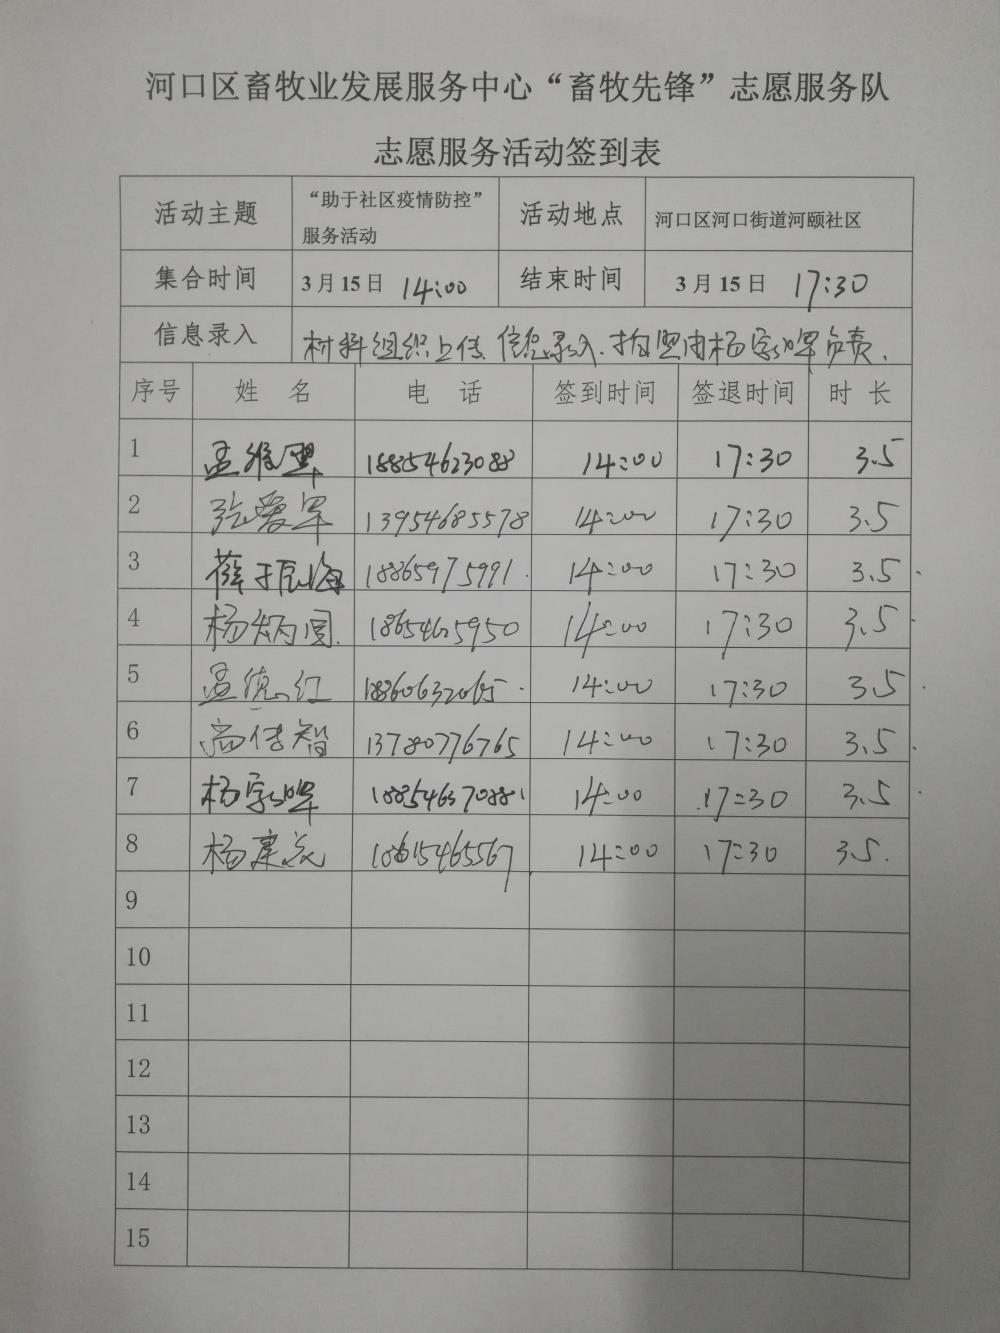 河口区畜牧业发展服务中心“畜牧先锋”志愿服务队
志愿服务活动签到表
活动主题 “助于社区疫情防控” 活动地点 河口区河口街道河颐社区
服务活动
集合时间 3月15日 14:00 结束时间 3月15日 17:30
信息录入 材料组织上传、信息录入、拍照由杨家晖负责.
序号 姓 名 电 话 签到时间 签退时间 时 长
1 孟维 18854623088 14:00 17:30 3.5
2 张爱军 13954685578 14:00 17:30 3.5
3 薛振海 18865975991 14:00 17:30 3.5
4 杨炳国 18654625950 14:00 17:30 3.5
5 孟德红 14:00 17:30 3.5
6 尚传智 13780776765 14:00 17:30 3.5
7 杨家晖 18854637088 14:00 17:30 3.5
8 杨建 18615465567 14:00 17:30 3.5
9
10
11
12
13
14
15